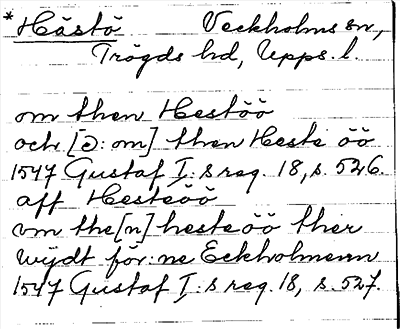 * Hästö Veckholms sn,
Trögds hd, Upps. l.
om then Hestöö
och [ɔ: om] then Heste öö
1547 Gustaf I:s reg. 18, s. 526.
aff Hesteöö
vm the[n] hesteöö ther
wijdt för:ne Eckholmenn
1547 Gustaf I:s reg. 18, s. 527.